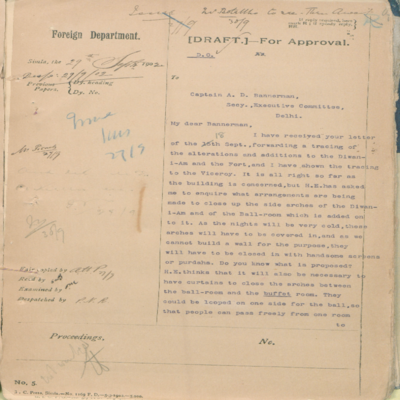 Foreign Department.
[DRAFT.] For Approval.
D.O. No.
Simla, the 29th Sept 1902
Previous
Papers.
Dy. No.
Issue
27/9
To
Captain A. D. Bannerman,
Secy. Executive Committee,
Delhi.
My dear Bannerman,
I have received your letter
of the 18th Sept., forwarding a tracing of
the alterations and additions to the Diwan-
i-Am and the Fort, and I have shown the tracing
to the Viceroy. It is all right so far as
the building is concerned, but H.E. has asked
me to enquire what arrangements are being
made to close up the side arches of the Diwan-
i-Am and of the Ball-room which is added on
to it. As the nights will be very cold, these
arches will have to be covered in, and as we
cannot build a wall for the purpose, they
will have to be closed in with handsome screens
or purdahs. Do you know what is proposed?
H.E. thinks that it will also be necessary to
have curtains to close the arches between
the ball-room and the buffet room. They
could be looped on one side for the ball, so
that people can pass freely from one room
to
Examined by
Despatched by
Proceedings,
No.
No. 5.